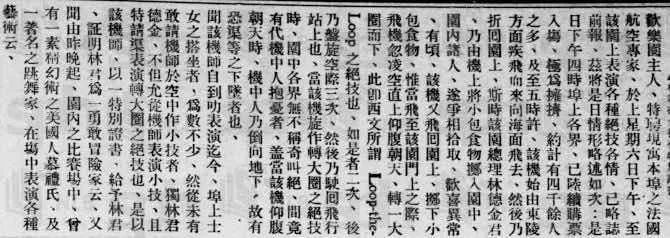 歡樂園主人、特聘現寓本埠之法國
航空專家、於上星期六日下午、至
該園上表演各種絕技各情、已略誌
前報、茲將是日情形略述如次：是
日下午四時埠上各界、已陸續購票
入塲、極爲擁擠、約計有四千餘人
之多、及至五時許、該機始由東陵
方面疾飛而來向海面飛去、然後乃
折回園上、斯時該園總理林德金君
乃由機上將小包食物擲入園中、
園內諸人、遂爭相拾取、歡喜異常
、有頃、該機又飛回園上、擲下小
包食物、惟當飛至該園門上之際、
飛機忽凌空直上仰腹朝天、轉一大
圈而下、此卽西文所謂 Loop-the-
Loop 之絕技也、如是者二次、後
乃盤旋空際三次、然後乃駛回飛行
站上也、當該機旋作轉大圈之絕技
時、園中各界無不稱奇叫絕、間竟
有代機中人抱憂者、蓋當該機仰腹
朝天時、機中人乃倒向地下、故有
恐渠等之下墜者也、
聞該機師自到叻表演迄今、埠上士
女之搭坐者、爲數不少、然從未有
敢請機師於空中作小技者、獨林君
德金、不但允從機師表演小技、且
特請渠表演轉大圈之絕技也、是以
該機師、以一特別證書、給予林君
、証明林君爲一勇敢冒險家云、又
聞由昨晚起、園內之比賽塲中、曾
有一素稱幻術之美國人墓禮氏、及
一著名之跳舞家、在塲中表演各種
藝術云、